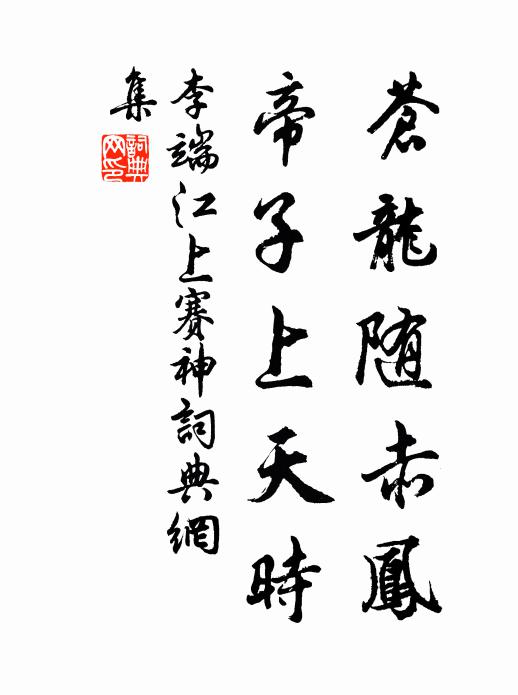 蒼龍随赤鳳
帝子上天時
李端江上賽神詞典網
集
詞典
网印